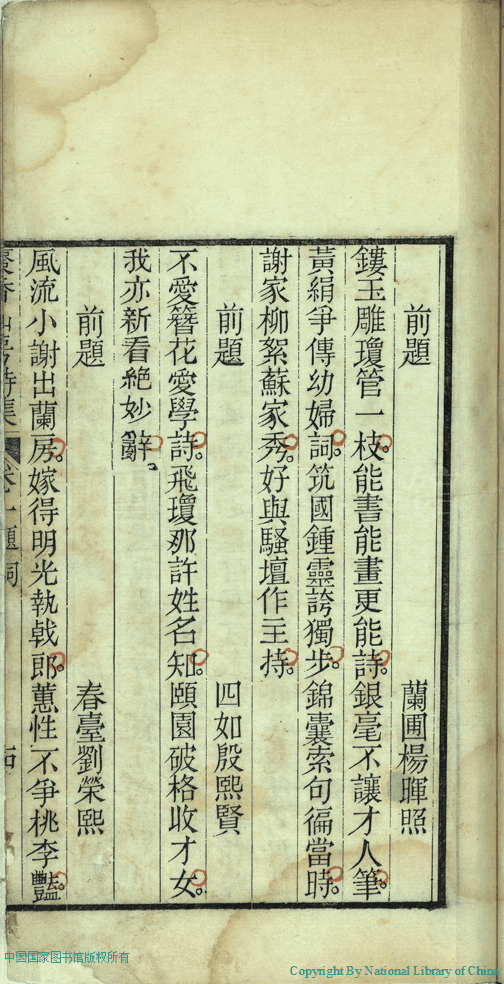 前題　蘭圃楊暉照
鏤玉雕瓊管一枝。能書能畫更能詩。銀毫不讓才人筆。
黃絹爭傳幼婦詞。筑國鍾靈誇獨步。錦囊索句徧當時。
謝家柳絮蘇家秀。好與騷壇作主持。
前題　四如殷熙賢
不愛簪花愛學詩。飛瓊那許姓名知。頤園破格收才女。
我亦新看絕妙辭。
前題　春臺劉榮熙
風流小謝出蘭房。嫁得明光執戟郎。蕙性不爭桃李豔。
詩集 卷一題詞
中国国家图书馆版权所有
Copyright By National Library of China